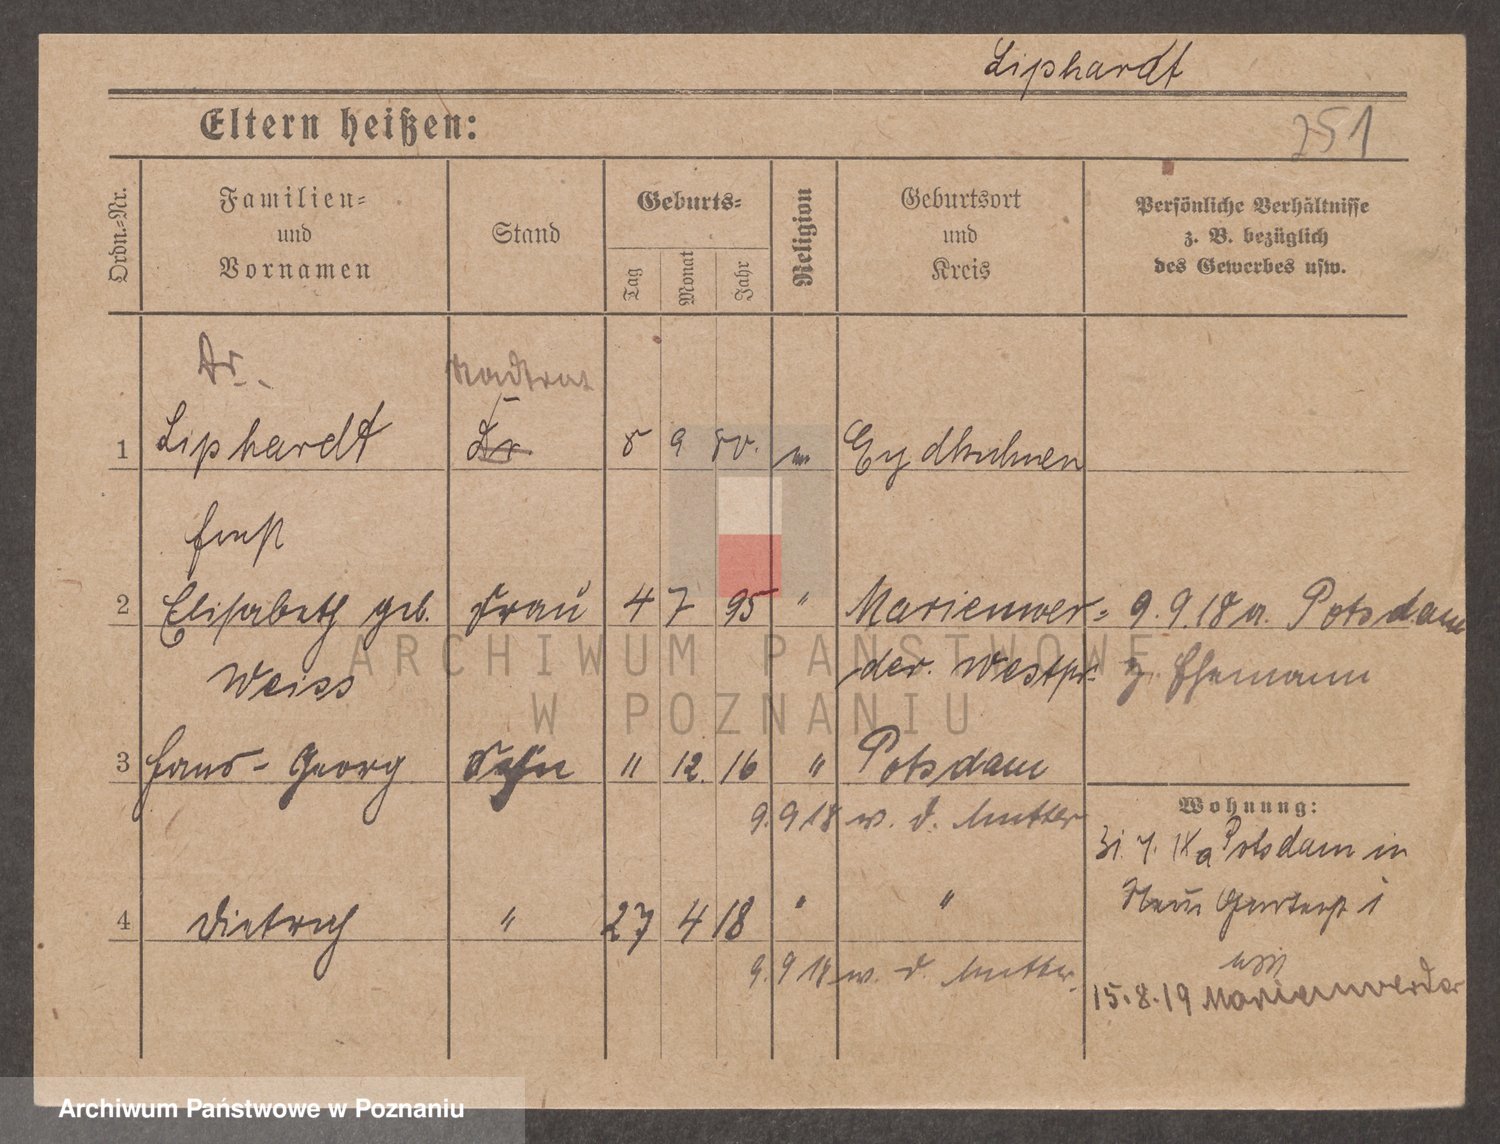 Liphardt
Eltern heißen:
251
Ordn.-Nr.
Familien-
und
Vornamen
Stand
Geburts-
Tag
Monat
Jahr
Religion
Geburtsort
und
Kreis
Persönliche Verhältnisse
z. B. bezüglich
des Gewerbes usw.
Dr.
Stadtrat
1 Liphardt Dr 8 9 80. Eydkuhnen
Ernst
2 Elisabeth geb. Frau 4 7 95 " Marienwer- 9.9.18 a. Potsdam
Weiss der. Westpr. z. Ehemann
3 Hans-Georg Sohn 11 12. 16 " Potsdam
9.9.18 w. d. Mutter
Wohnung:
Potsdam in
4 Dietrich " 27 4 18 " "
9.9.18 w. d. Mutter.
15.8.19 Marienwerder
ARCHIWUM PAŃSTWOWE
W POZNANIU
Archiwum Państwowe w Poznaniu